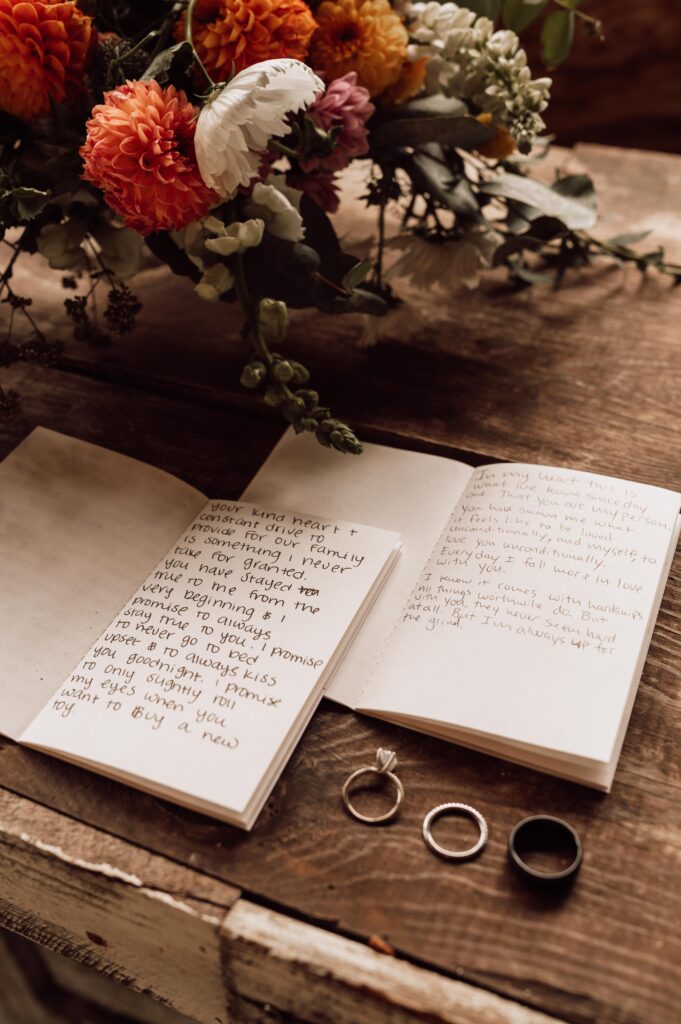 your kind heart +
constant drive to
provide for our family
is something I never
take for granted.
you have stayed
true to me from the
very beginning & I
promise to always
stay true to you. I promise
to never go to bed
upset & to always kiss
you goodnight. I promise
to only slightly roll
my eyes when you
want to Buy a new
toy
In my heart this is
what I've kown since day
one. That you are my person.
You have shown me what
it feels like to be loved
unconditionally, and myself, to
love you unconditionally.
Everyday I fall more in love
with you.
I know it comes with hardships
All things worthwhile do. But
with you, they never seem hard
atall. But I'm always up for
the grind